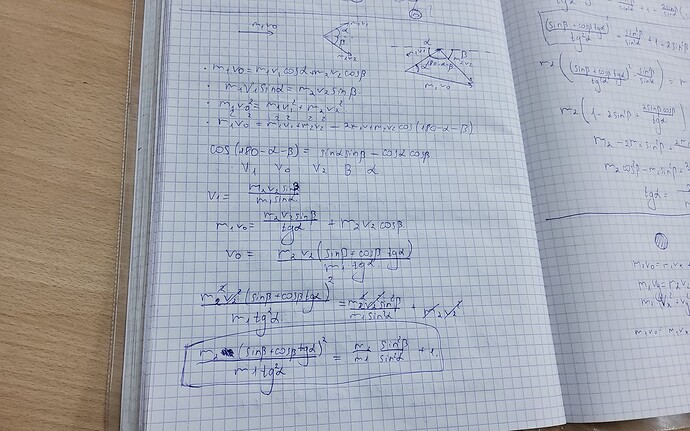 m₁v₀
m₁v₁
α
β
m₂v₂
α
β
180-α-β
m₂v₂
m₁v₀
• m₁v₀ = m₁v₁cosα + m₂v₂cosβ
• m₁v₁sinα = m₂v₂sinβ
• m₁v₀² = m₁v₁² + m₂v₂²
• m₁²v₀² = m₁²v₁² + m₂²v₂² - 2m₁v₁m₂v₂cos(180-α-β)
cos(180-α-β) = sinαsinβ - cosα cosβ
v₁ v₀ v₂ β α
v₁ = m₂v₂sinβ / m₁sinα
m₁v₀ = m₂v₂sinβ / tgα + m₂v₂cosβ
v₀ = m₂v₂(sinβ + cosβ tgα) / m₁tgα
m₂²v₂²(sinβ + cosβtgα)² / m₁tg²α = m₂²v₂²sin²β / m₁sin²α + m₂v₂²
m₂(sinβ + cosβtgα)² / m₁tg²α = m₂ sin²β / m₁ sin²α + 1
(sinβ + cosβtgα)² / tg²α - sin²β / sin²α
m₂((sinβ + cosβtgα)² / tg²α - sin²β / sin²α) =
m₂(1 - 2sin²β + 2sinβcosβ / tgα)
tgα =
m₁v₀ = m₁v₁ +